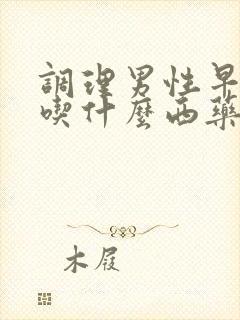 調理男性早
喫什麼西藥
木屐